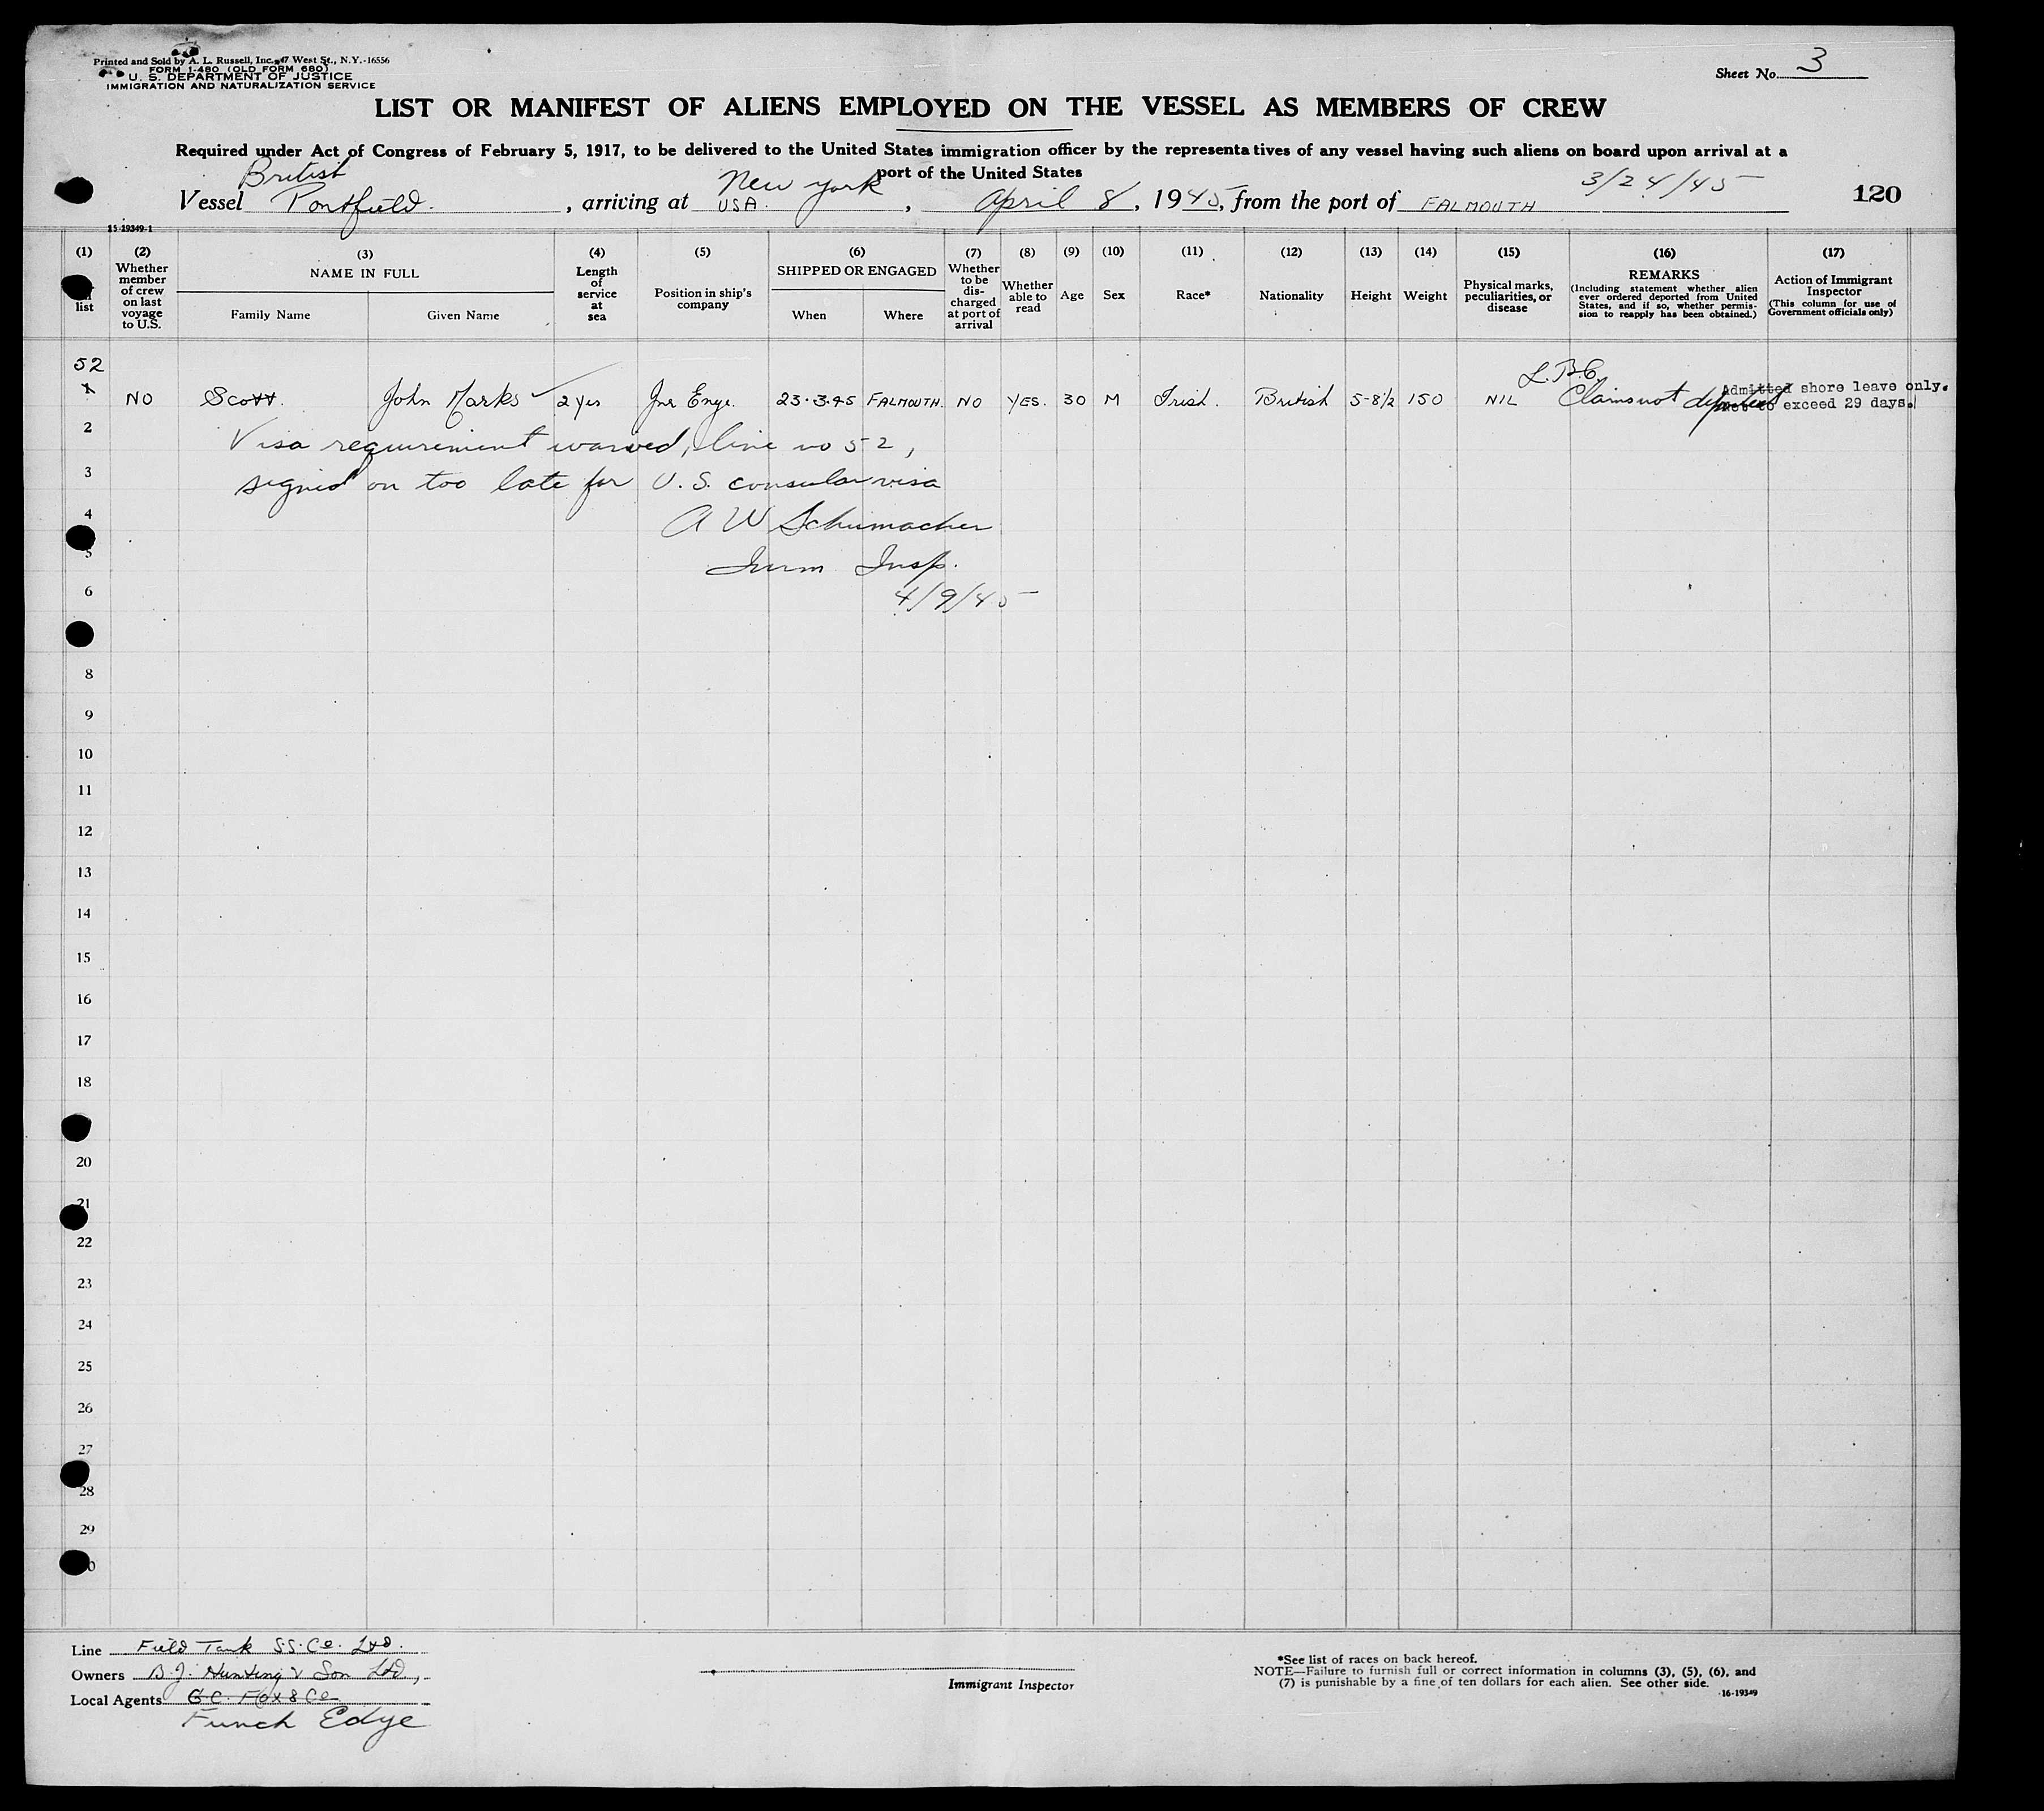 Printed and Sold by A. L. Russell, Inc., 47 West St., N.Y.-16556
FORM I-480 (OLD FORM 680)
U. S. DEPARTMENT OF JUSTICE
IMMIGRATION AND NATURALIZATION SERVICE
Sheet No. 3
LIST OR MANIFEST OF ALIENS EMPLOYED ON THE VESSEL AS MEMBERS OF CREW
Required under Act of Congress of February 5, 1917, to be delivered to the United States immigration officer by the representatives of any vessel having such aliens on board upon arrival at a
port of the United States
British
3/24/45
Vessel Pontfield. , arriving at New York USA. , April 8, 1945, from the port of FALMOUTH
120
(1) list
(2) Whether member of crew on last voyage to U.S.
(3) NAME IN FULL
Family Name Given Name
(4) Length of service at sea
(5) Position in ship's company
(6) SHIPPED OR ENGAGED
When Where
(7) Whether to be discharged at port of arrival
(8) Whether able to read
(9) Age
(10) Sex
(11) Race*
(12) Nationality
(13) Height
(14) Weight
(15) Physical marks, peculiarities, or disease
(16) REMARKS
(Including statement whether alien ever ordered deported from United States, and if so, whether permission to reapply has been obtained.)
(17) Action of Immigrant Inspector
(This column for use of Government officials only)
52
1 NO Scott. John Marks 2 yrs Jnr Engr. 23.3.45 FALMOUTH. NO YES. 30 M Irish. British 5-8½ 150 NIL Claims not deported
Admitted shore leave only.
not to exceed 29 days.
2 Visa requirement waived, line no 52,
3 signed on too late for U.S. consular visa
4 A W Schumacher
5 Imm Insp.
6 4/9/45
8
9
10
11
12
13
14
15
16
17
18
20
21
22
23
24
25
26
27
28
29
Line Field Tank S.S. Co. Ltd.
Owners B.J. Hunting & Son Ltd,
Local Agents G.C. Fox & Co
Funch Edye
Immigrant Inspector
*See list of races on back hereof.
NOTE—Failure to furnish full or correct information in columns (3), (5), (6), and
(7) is punishable by a fine of ten dollars for each alien. See other side.
16-19349